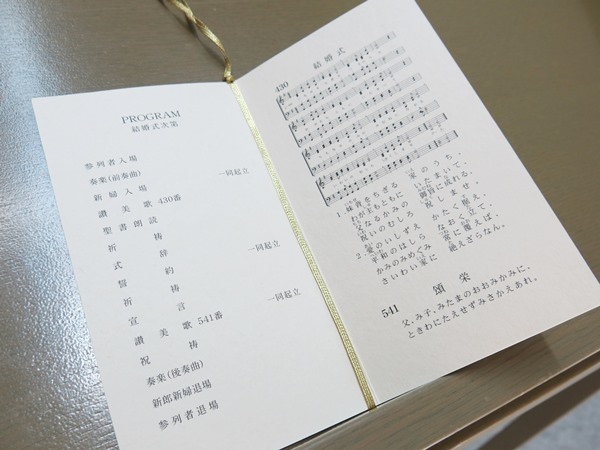 PROGRAM
結婚式次第
参列者入場
奏楽(前奏曲)
新婦入場 一同起立
讃美歌430番
聖書朗読
祈祷
式辞
誓約 一同起立
祈祷
宣言
讃美歌541番 一同起立
祝祷
奏楽(後奏曲)
新郎新婦退場
参列者退場
結婚式
430
1. 妹背をちぎる 家のうち、
わが主もともに いたまいて、
父なるかみの 御旨に成れる、
祝いのむしろ 祝しませ。
2. 愛のいしずえ かたく据え、
平和のはしら なおく立て、
かみのみめぐみ 常に覆えば、
さいわい家に 絶えざらなん。
頌栄
541
父、み子、みたまのおおみかみに、
ときわにたえせずみさかえあれ。